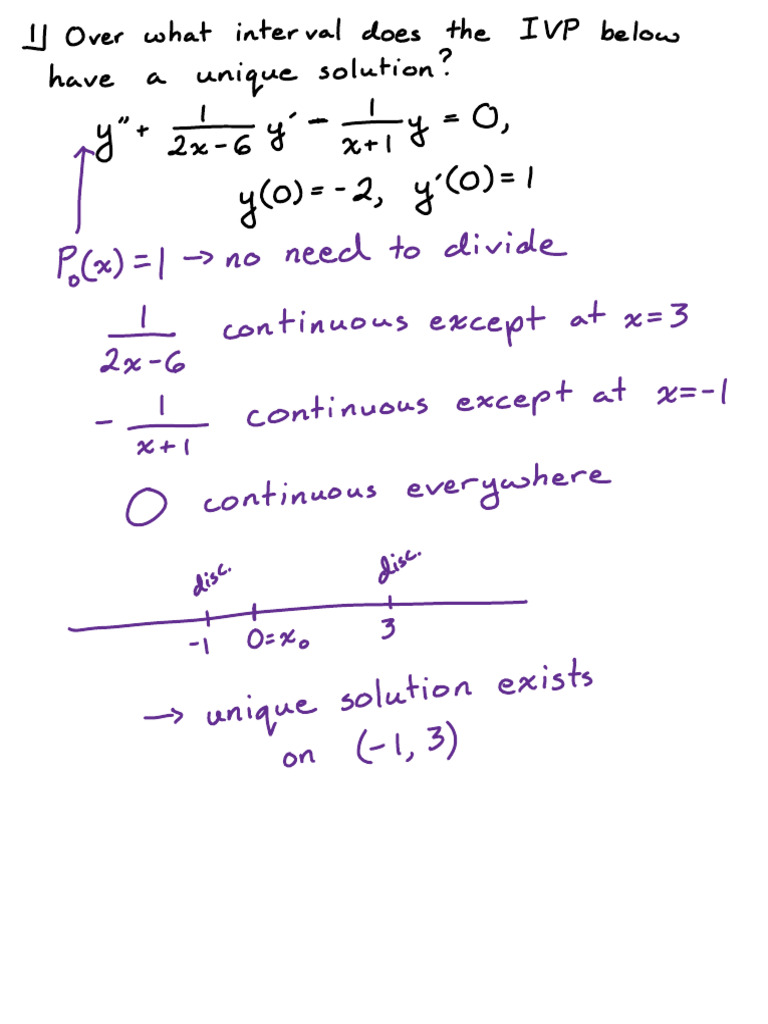 1) Over what interval does the IVP below
have a unique solution?
y" + 1/(2x-6) y' - 1/(x+1) y = 0,
y(0) = -2, y'(0) = 1
P₀(x) = 1 → no need to divide
1/(2x-6) continuous except at x=3
- 1/(x+1) continuous except at x=-1
0 continuous everywhere
disc. disc.
-1 0=x₀ 3
→ unique solution exists
on (-1, 3)